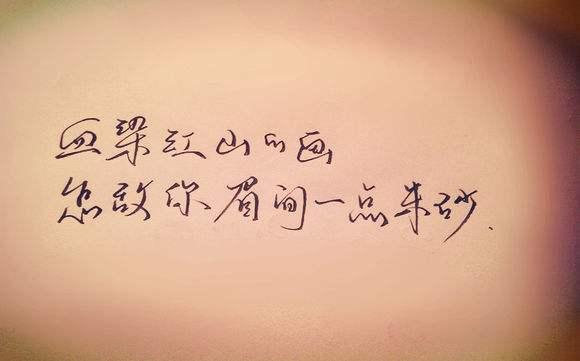 血染江山的画
怎敌你眉间一点朱砂.